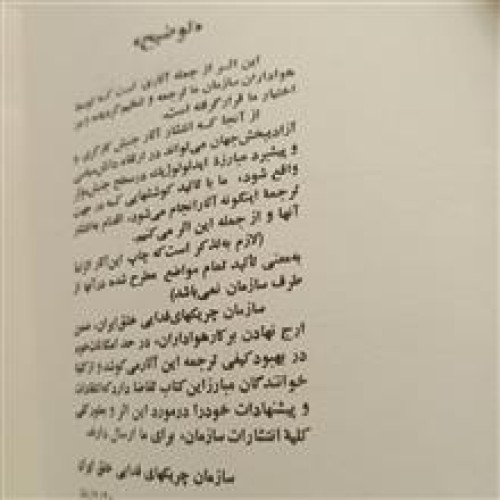 «توضیح»
این اثر از جمله آثاری است که توسط
هواداران سازمان ما ترجمه و تنظیم گردیده و در
اختیار ما قرار گرفته است.
از آنجا که انتشار آثار جنبش کارگری و
آزادیبخش جهان می‌تواند در ارتقاء دانش سیاسی
و پیشبرد مبارزهٔ ایدئولوژیک در سطح جنبش مؤثر
واقع شود، ما با تائید کوششهایی که در جهت
ترجمهٔ اینگونه آثار انجام می‌شود، اقدام به انتشار
آنها و از جمله این اثر می‌کنیم.
(لازم به تذکر است که چاپ این آثار لزوما
به‌معنی تأئید تمام مواضع مطرح شده در آنها از
طرف سازمان نمی‌باشد)
سازمان چریکهای فدایی خلق ایران، ضمن
ارج نهادن بر کار هواداران، در حد امکانات خود
در بهبود کیفی ترجمه این آثار می‌کوشد و از کلیهٔ
خوانندگان مبارز این کتاب تقاضا دارد که انتقادات
و پیشنهادات خود را در مورد این اثر و بطور کلی
کلیهٔ انتشارات سازمان، برای ما ارسال دارند.
سازمان چریکهای فدایی خلق ایران